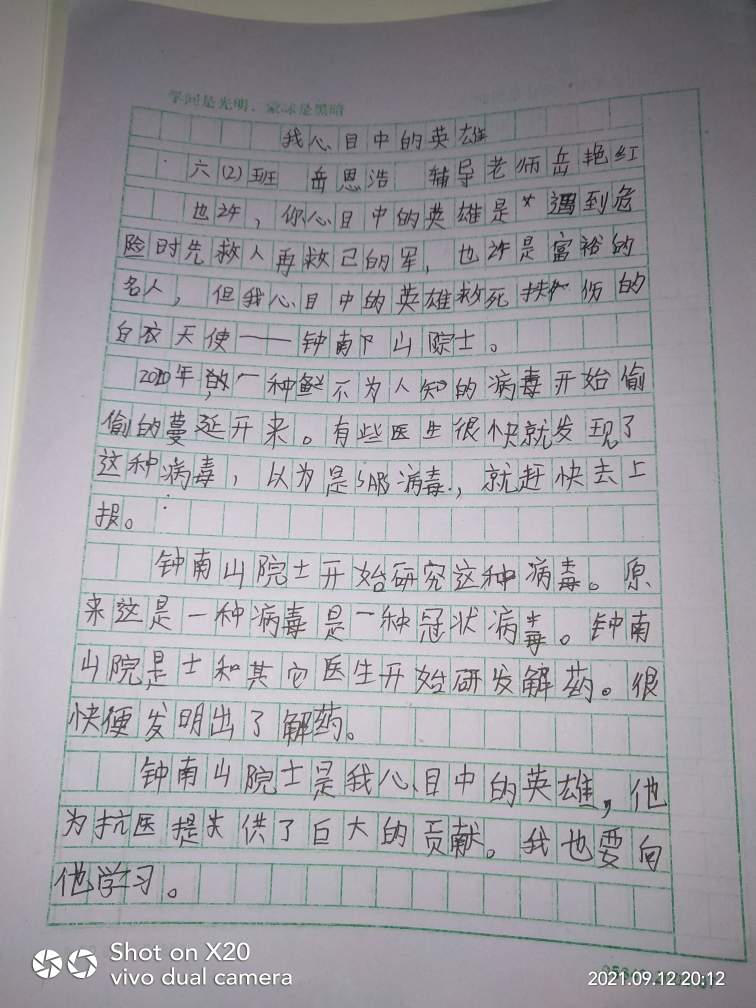 学问是光明，蒙昧是黑暗
我心目中的英雄
六(2)班 岳恩浩 辅导老师岳艳红
也许，你心目中的英雄是遇到危
险时先救人再救己的军，也许是富裕的
名人，但我心目中的英雄救死扶伤的
白衣天使——钟南山院士。
2020年，一种鲜不为人知的病毒开始偷
偷的蔓延开来。有些医生很快就发现了
这种病毒，以为是病毒，就赶快去上
报。
钟南山院士开始研究这种病毒。原
来这是一种病毒是一种冠状病毒。钟南
山院是士和其它医生开始研发解药。很
快便发明出了解药。
钟南山院士是我心目中的英雄，他
为抗医提供了巨大的贡献。我也要向
他学习。
Shot on X20
vivo dual camera
2021.09.12 20:12